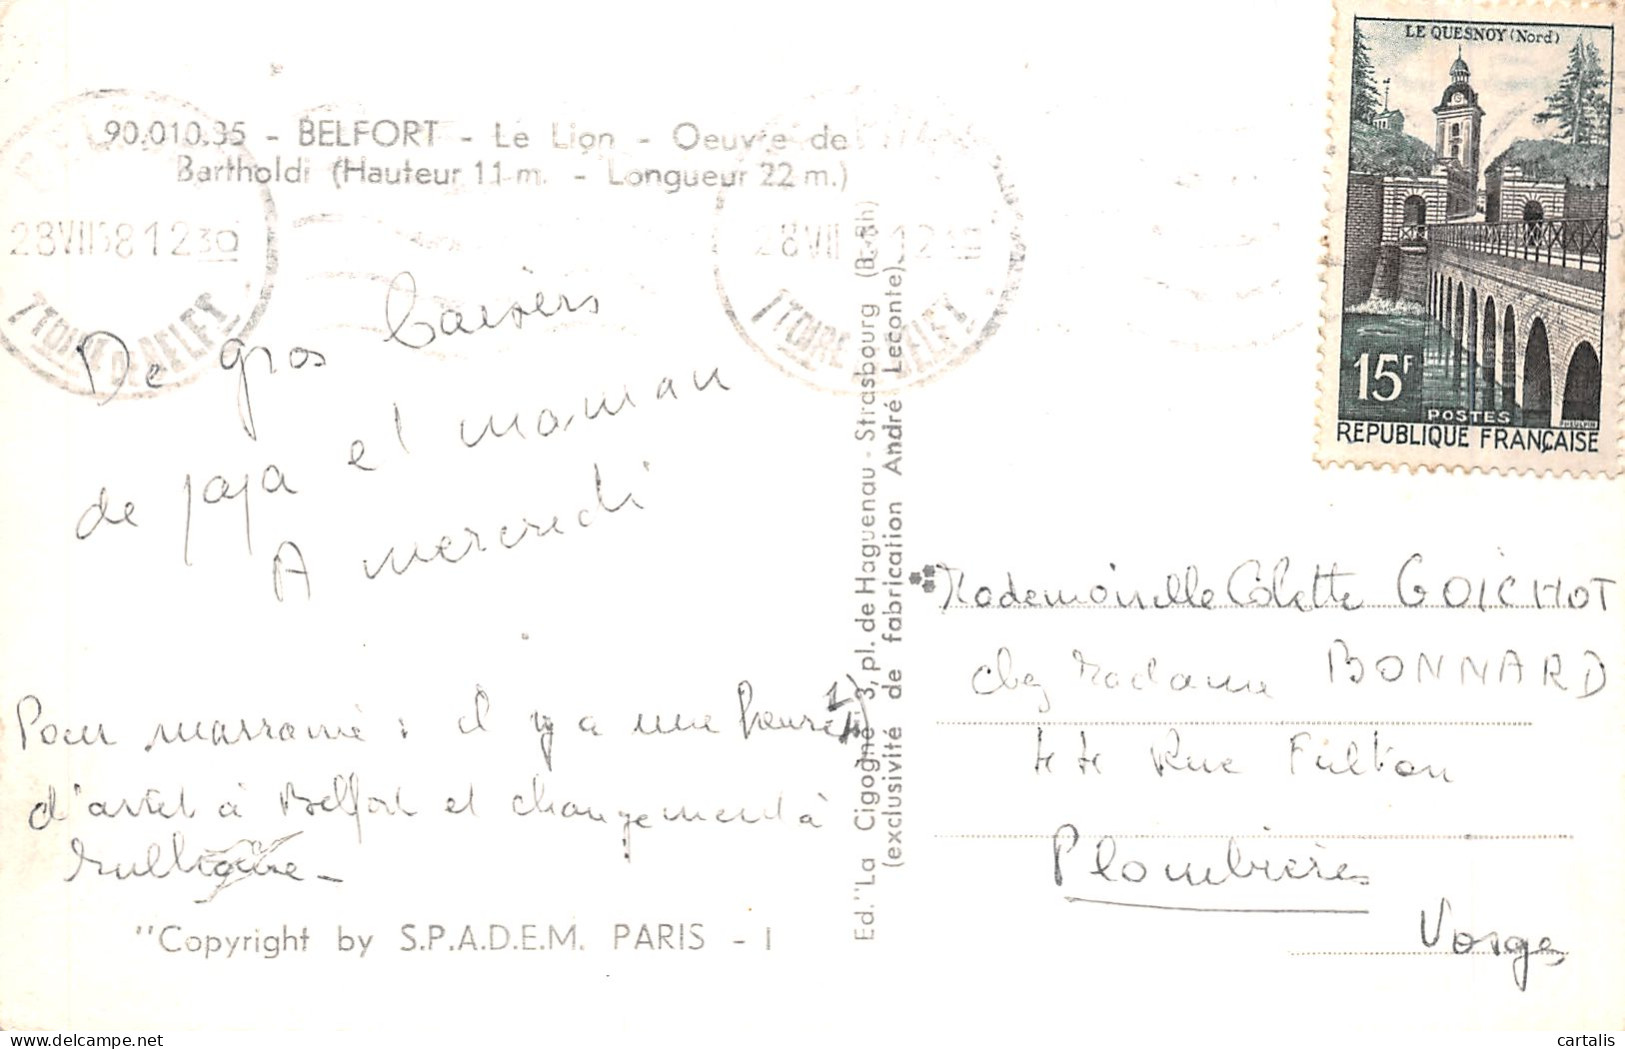 90.010.35 - BELFORT - Le Lion - Oeuvre de
Bartholdi (Hauteur 11 m. - Longueur 22 m.)
28 VII 58 12 30
De gros baisers
de papa et maman
A mercredi
Pour marraine : il y a une heure
d'arrêt à Belfort et changement à
"Copyright by S.P.A.D.E.M. PARIS - I
Ed. "La Cigogne" 3, pl. de Haguenau - Strasbourg (B.-Rh)
(exclusivité de fabrication André Leconte)
LE QUESNOY (Nord)
15F
POSTES
REPUBLIQUE FRANÇAISE
Mademoiselle Colette GOICHOT
chez Madame BONNARD
44 Rue Fulton
Plombières
Vosges
delcampe.net
cartalis